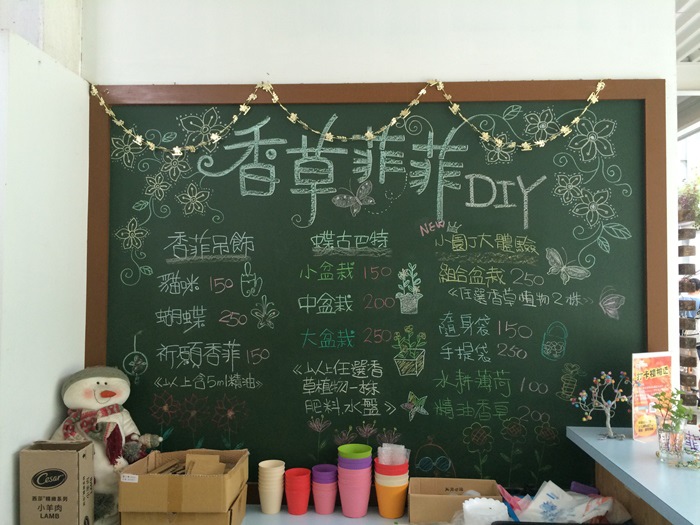 香草菲菲DIY
香菲吊飾
貓咪 150
蝴蝶 250
祈願香菲 150
《以上含5ml精油》
蝶古巴特
小盆栽 150
中盆栽 200
大盆栽 250
《以上任選香
草植物一株
肥料、水盤》
NEW
小園丁大體驗
組合盆栽 250
《任選香草植物2株》
隨身袋 150
手提袋 250
水耕薄荷 100
精油香草 200
Cesar
小羊肉
LAMB